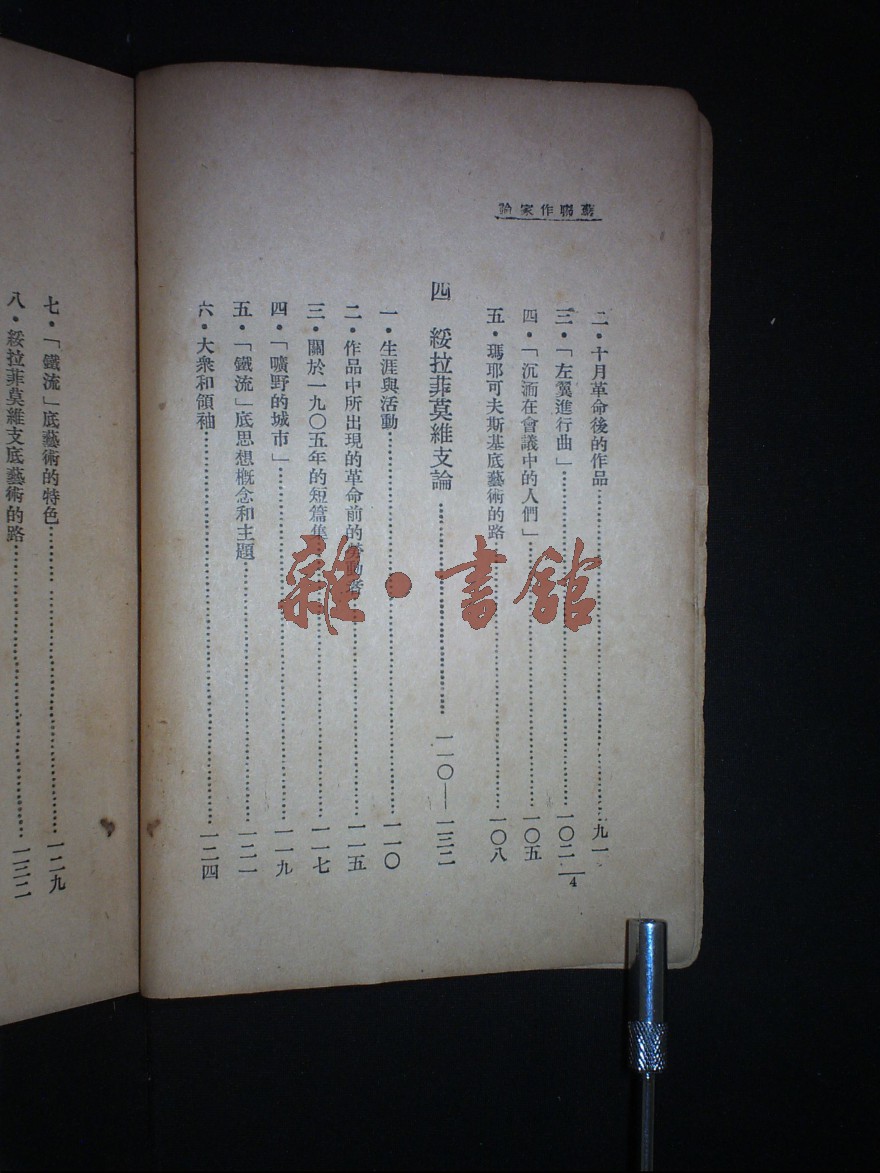 蘇聯作家論
二・十月革命後的作品……九一
三・「左翼進行曲」……一〇二
四・「沉湎在會議中的人們」……一〇五
五・瑪耶可夫斯基底藝術的路……一〇八
四 綏拉菲莫維支論……一一〇—一三二
一・生涯與活動……一一〇
二・作品中所出現的革命前的勞動者……一一五
三・關於一九〇五年的短篇集……一一七
四・「曠野的城市」……一一九
五・「鐵流」底思想概念和主題……一二一
六・大衆和領袖……一二四
4
七・「鐵流」底藝術的特色……一二九
八・綏拉菲莫維支底藝術的路……一三二
雜・書館